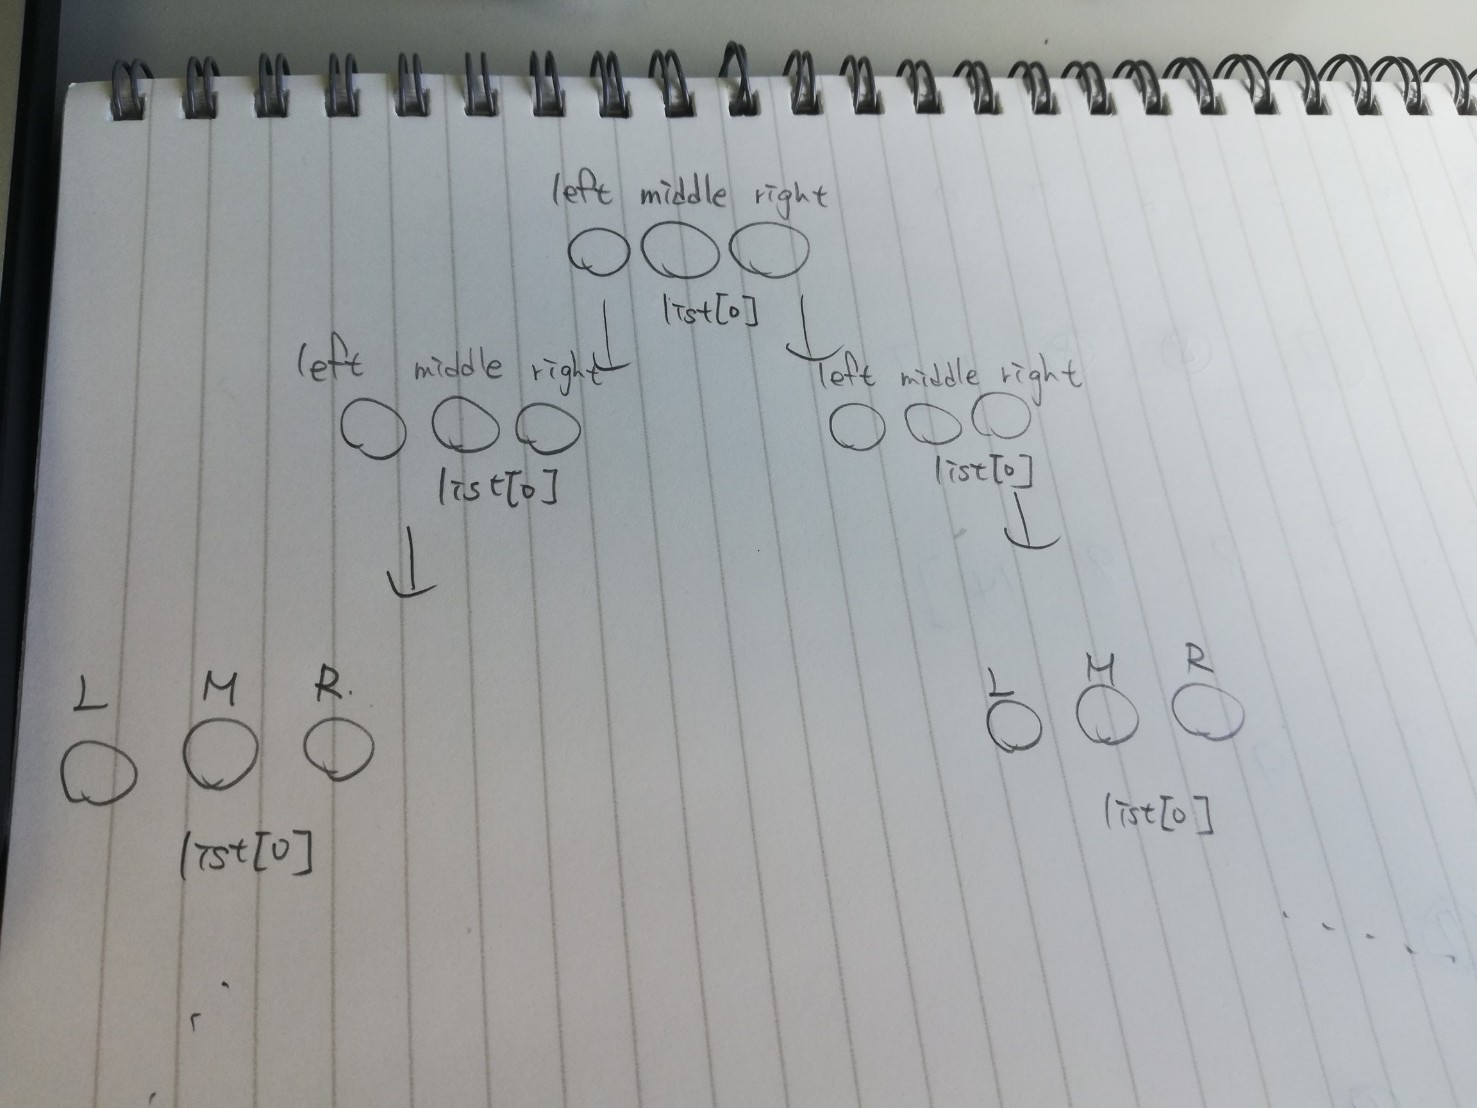 left middle right
list[0]
left middle right
list[0]
left middle right
list[0]
L M R.
list[0]
L M R
list[0]